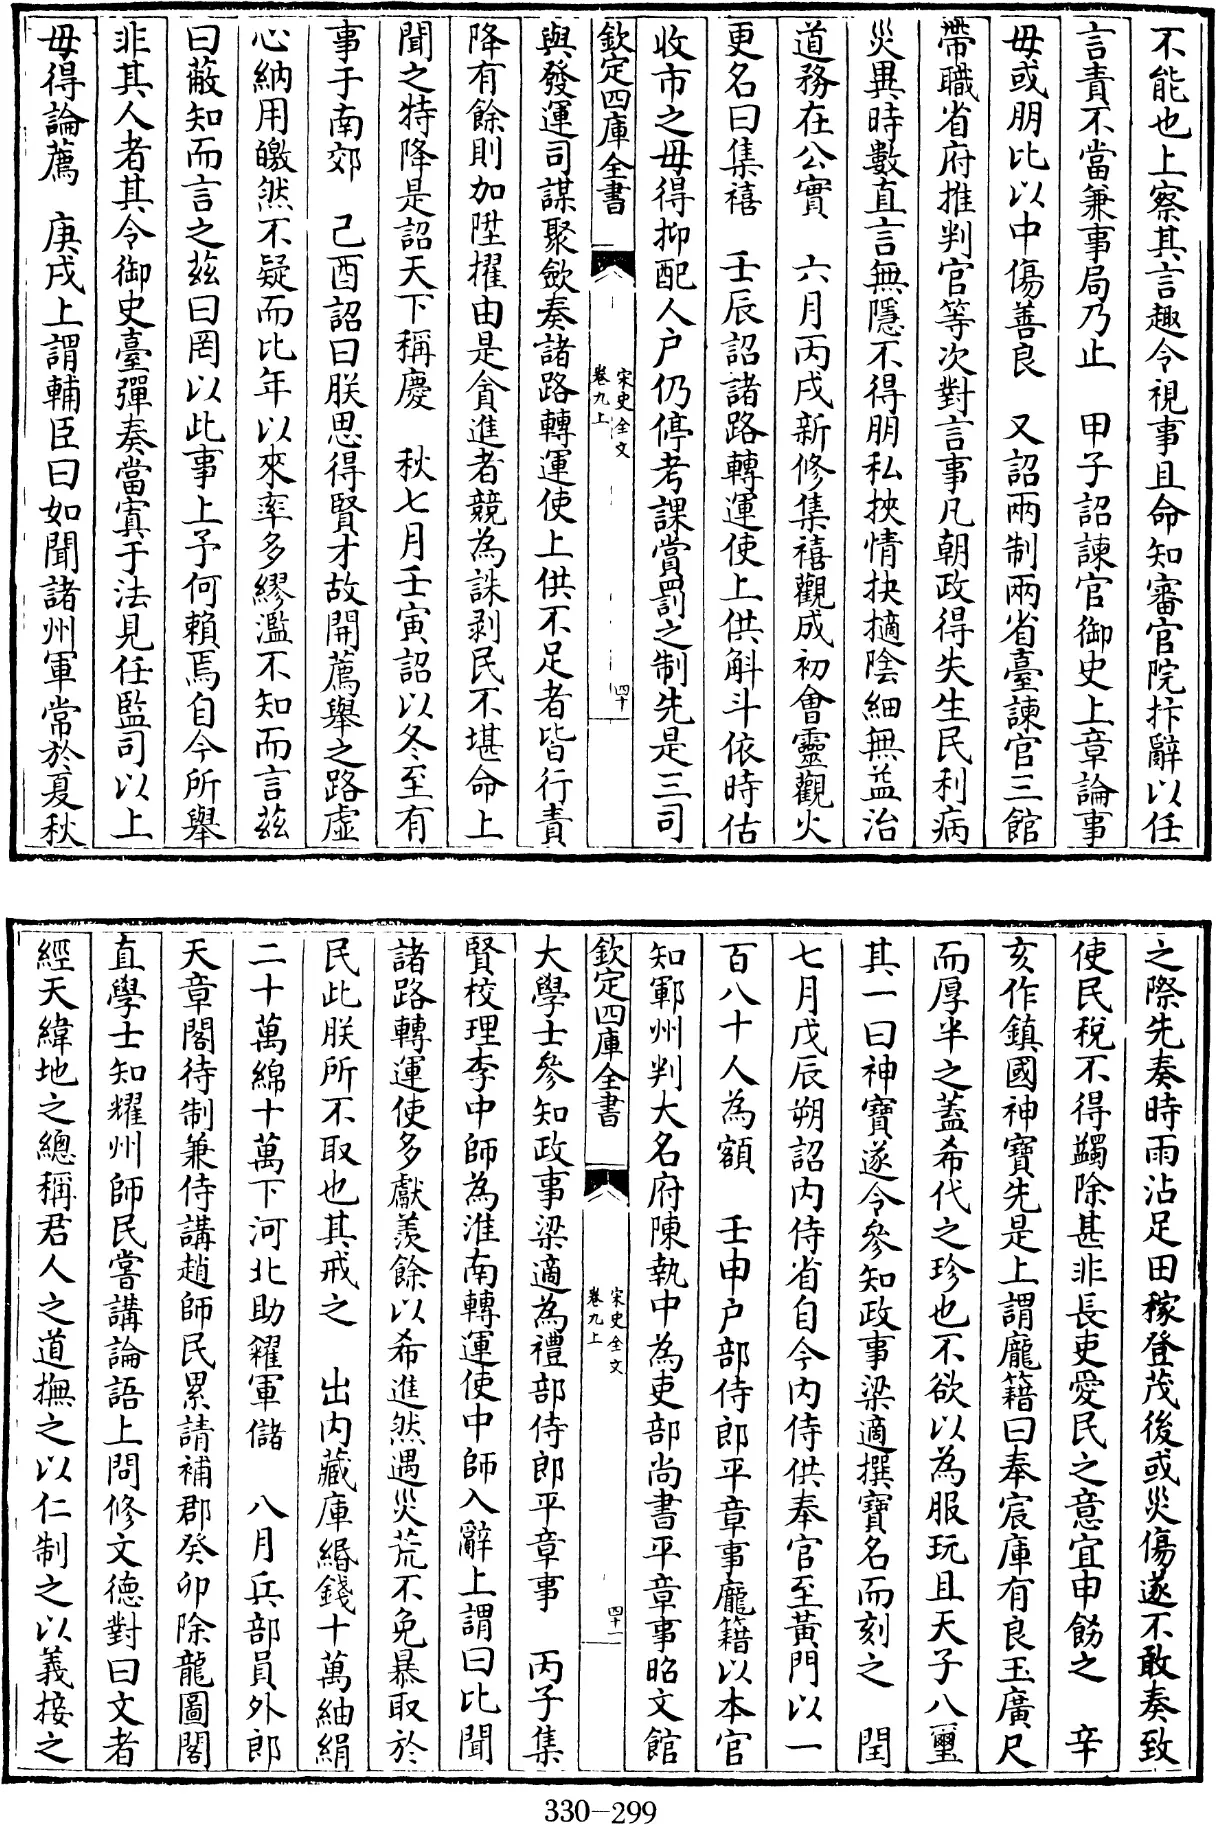 不能也上察其言趣令視事且命知審官院抃辭以任
言責不當兼事局乃止　甲子詔諫官御史上章論事
毋或朋比以中傷善良　又詔兩制兩省臺諫官三館
帶職省府推判官等次對言事凡朝政得失生民利病
災異時數直言無隱不得朋私挾情抉擿陰細無益治
道務在公實　六月丙戌新修集禧觀成初會靈觀火
更名曰集禧　壬辰詔諸路轉運使上供斛斗依時估
收市之毋得抑配人户仍停考課賞罰之制先是三司
欽定四庫全書　宋史全文　卷九上　四十
與發運司謀聚斂奏諸路轉運使上供不足者皆行責
降有餘則加陞擢由是貪進者競為誅剥民不堪命上
聞之特降是詔天下稱慶　秋七月壬寅詔以冬至有
事于南郊　己酉詔曰朕思得賢才故開薦舉之路虛
心納用皦然不疑而比年以來率多繆濫不知而言兹
曰蔽知而言之兹曰罔以此事上予何賴焉自今所舉
非其人者其令御史臺彈奏當寘于法見任監司以上
毋得論薦　庚戌上謂輔臣曰如聞諸州軍常於夏秋
之際先奏時雨沾足田稼登茂後或災傷遂不敢奏致
使民税不得蠲除甚非長吏愛民之意宜申飭之　辛
亥作鎮國神寶先是上謂龐籍曰奉宸庫有良玉廣尺
而厚半之蓋希代之珍也不欲以為服玩且天子八璽
其一曰神寶遂令參知政事梁適撰寶名而刻之　閏
七月戊辰朔詔内侍省自今内侍供奉官至黄門以一
百八十人為額　壬申户部侍郎平章事龐籍以本官
知鄆州判大名府陳執中為吏部尚書平章事昭文館
欽定四庫全書　宋史全文　卷九上　四十一
大學士參知政事梁適為禮部侍郎平章事　丙子集
賢校理李中師為淮南轉運使中師入辭上謂曰比聞
諸路轉運使多獻羨餘以希進然遇災荒不免暴取於
民此朕所不取也其戒之　出内藏庫緡錢十萬紬絹
二十萬綿十萬下河北助糴軍儲　八月兵部員外郎
天章閣待制兼侍講趙師民累請補郡癸卯除龍圖閣
直學士知耀州師民嘗講論語上問修文德對曰文者
經天緯地之總稱君人之道撫之以仁制之以義接之
330-299